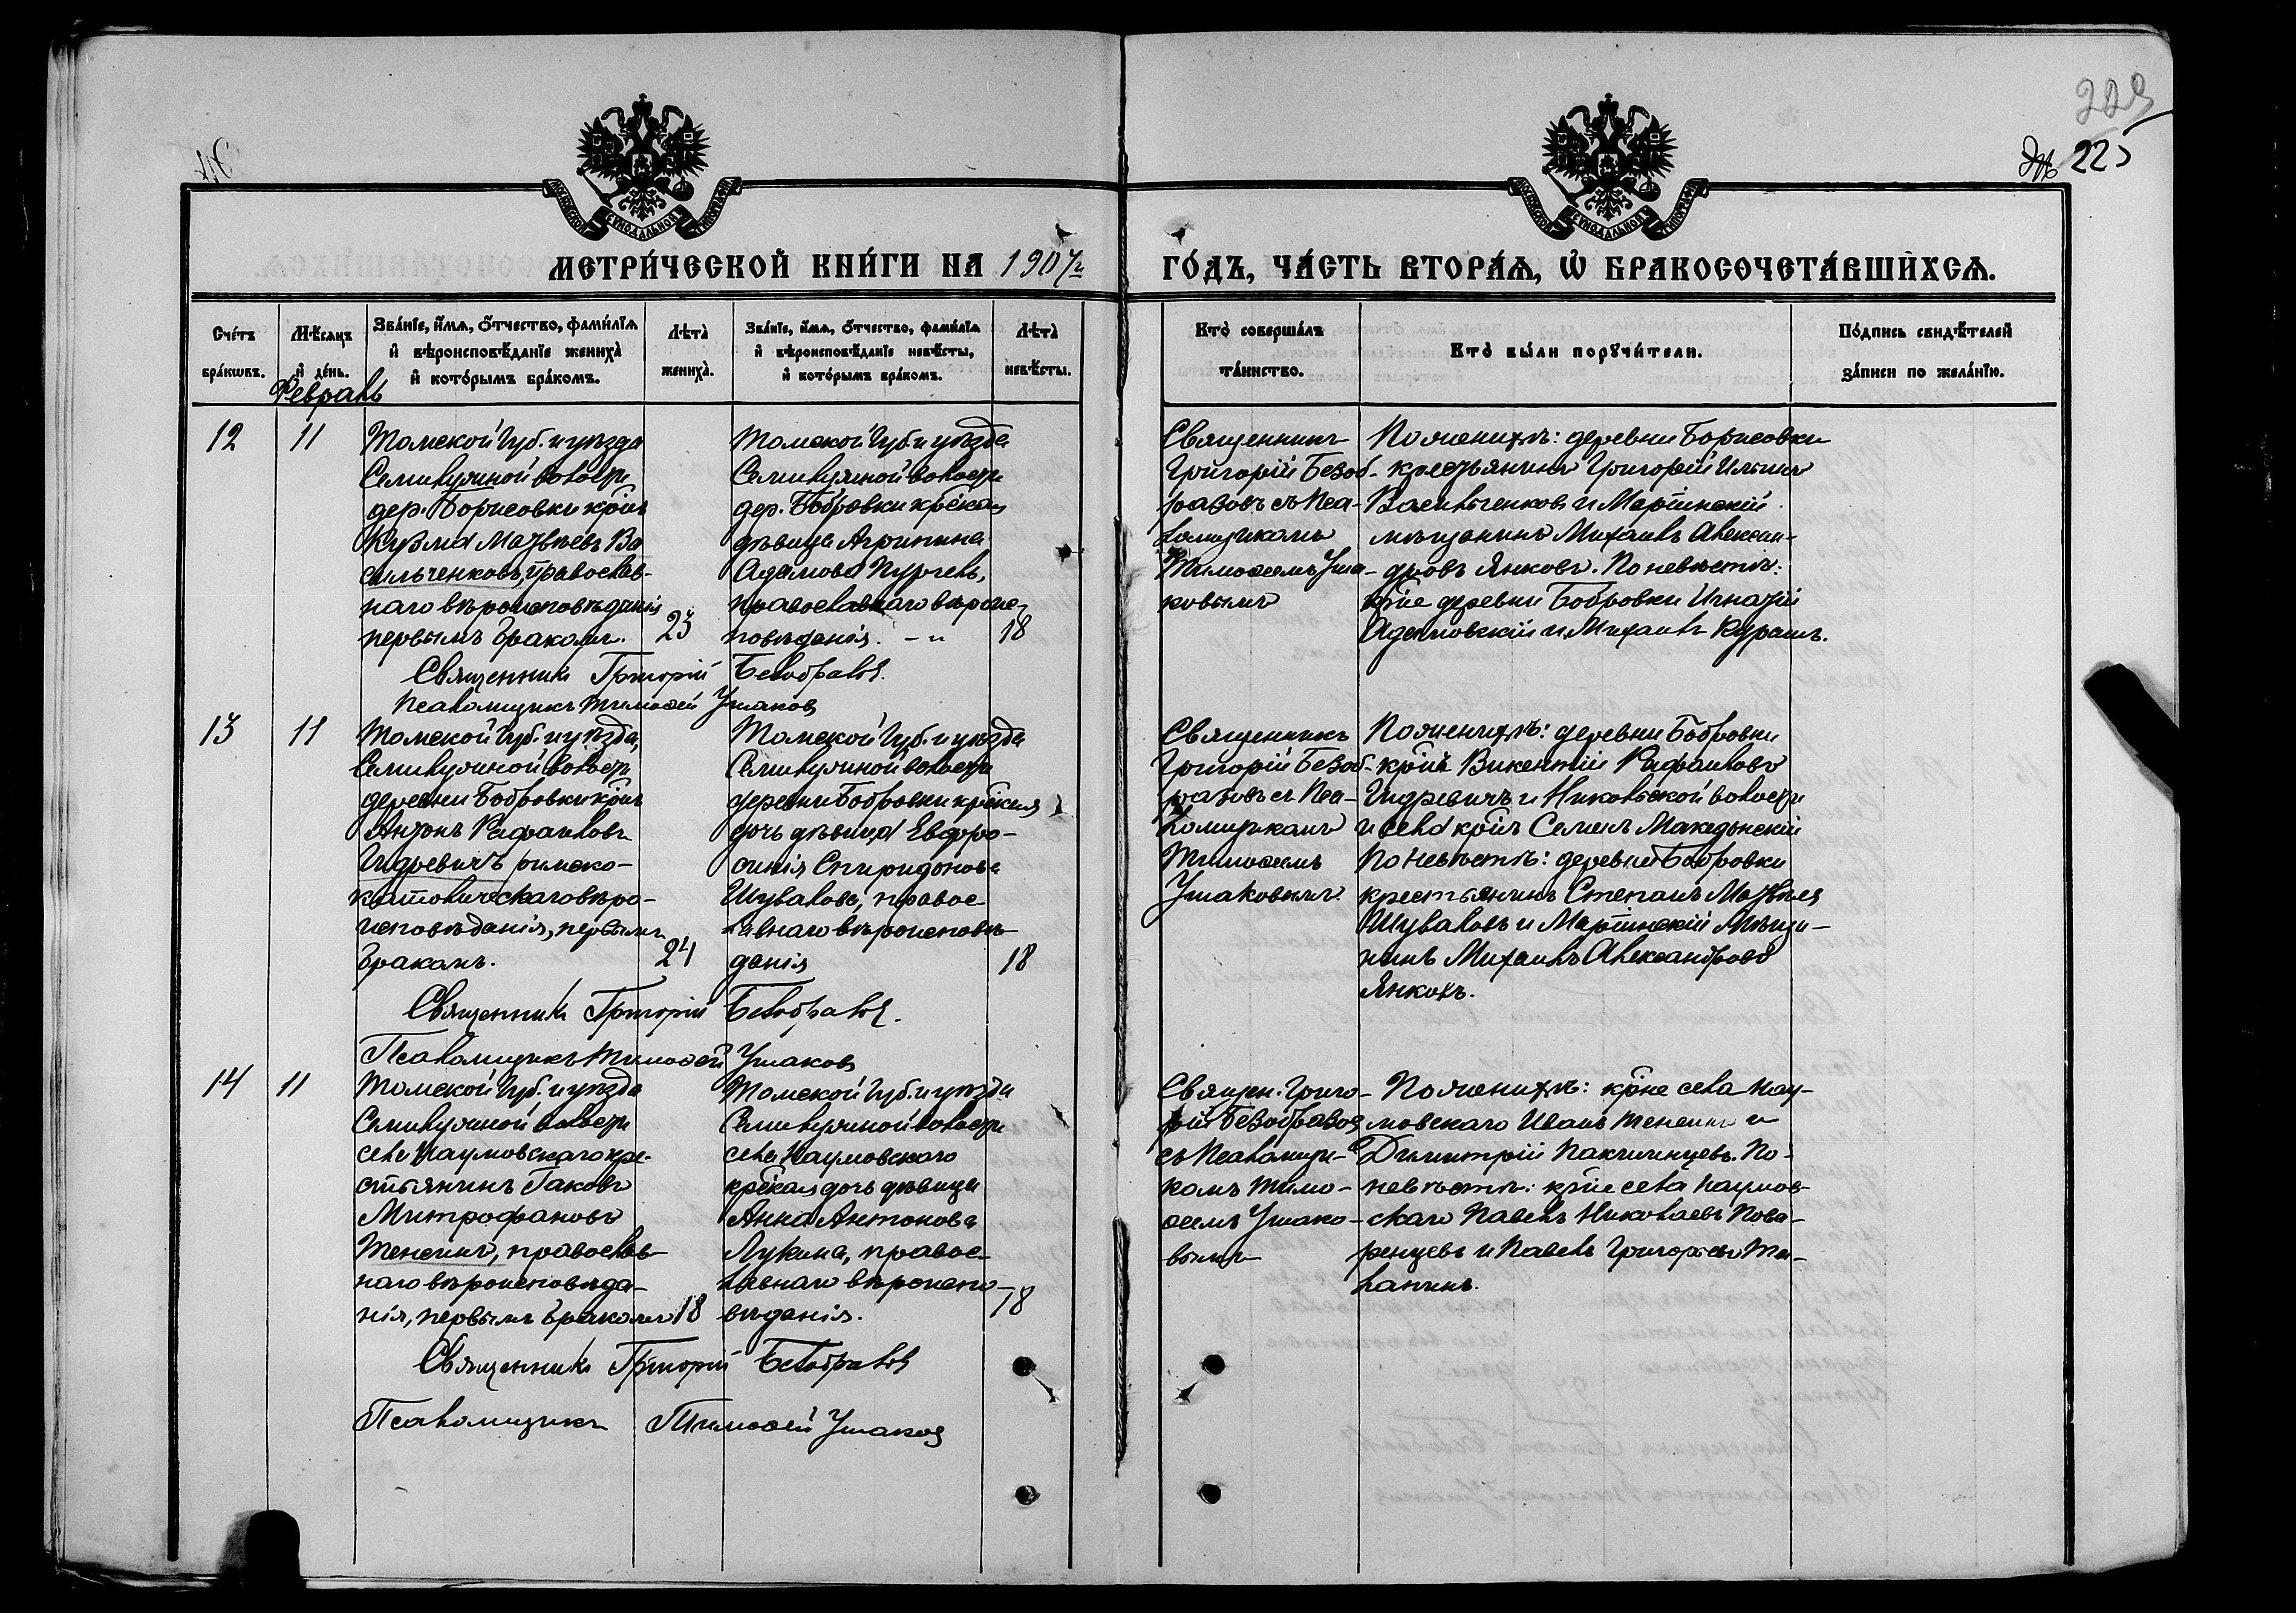 225
МОСКОВСКОЙ СѴНОДАЛЬНОЙ ТИПОГРАФІИ
МОСКОВСКОЙ СѴНОДАЛЬНОЙ ТИПОГРАФІИ
МЕТРИ́ЧЕСКОЙ КНИ́ГИ НА 1907 г. ГО́ДЪ, ЧА́СТЬ ВТОРА́Ѧ, Ѽ БРАКОСОЧЕТА́ВШИХСѦ.
Сче́тъ бра́кѡвъ.
Мѣ́сѧцъ и҆ де́нь.
Зва́нїе, и҆́мѧ, ѻ҆́тчество, фами́лїѧ и҆ вѣроисповѣ́данїе жениха̀ и҆ кото́рымъ бра́комъ.
Лѣта̀ жениха̀.
Зва́нїе, и҆́мѧ, ѻ҆́тчество, фами́лїѧ и҆ вѣроисповѣ́данїе невѣ́сты, и҆ кото́рымъ бра́комъ.
Лѣта̀ невѣ́сты.
Кто̀ соверша́лъ та́инство.
Кто̀ бы́ли порꙋчи́тели.
По́дпись свидѣ́телей за́писи по жела́нїю.
Февраль
12
11
Томской Губ. и уѣзда
Семилужной волости
дер. Борисовки кр-нъ
Кузма Матвѣевъ Ва
сильченковъ, православ-
наго вѣроисповѣданія
первымъ бракомъ.
23
Томской Губ. и уѣзда
Семилужной волости
дер. Бобровки кр-ская
дѣвица Агрипина
Адамова Пургель,
православнаго вѣроис-
повѣданія. – „
18
Священникъ
Григорій Безоб-
разовъ съ Пса-
ломщикомъ
Тимоѳеемъ Уша-
ковымъ
По женихѣ: деревни Борисовки
крестьянинъ Григорій Ильинъ
Васильченковъ и Маріинскій
мѣщанинъ Михаилъ Алексан-
дровъ Янковъ. По невѣстѣ:
кр-не деревни Бобровки Игнатій
Адамовскій и Михаилъ Курашъ.
Священникъ Григорій Безобразовъ.
Псаломщикъ Тимоѳей Ушаковъ
13
11
Томской Губ. и уѣзда,
Семилужной волости
деревни Бобровки кр-нъ
Антонъ Рафаиловъ
Гидревичъ римско-
католическаго вѣро-
исповѣданія, первымъ
бракомъ.
24
Томской Губ. и уѣзда
Семилужной волости
деревни Бобровки кр-ская
дочь дѣвица Евфро-
синія Спиридонова
Шувалова, правос-
лавнаго вѣроисповѣ-
данія
18
Священникъ
Григорій Безоб-
разовъ съ Пса-
ломщикомъ
Тимоѳеемъ
Ушаковымъ.
По женихѣ: деревни Бобровки
кр-нъ Викентій Рафаиловъ
Гидревичъ и Никольской волости
и села кр-нъ Семенъ Македонскій
По невѣстѣ: деревни Бобровки
крестьянинъ Степанъ Матвѣевъ
Шуваловъ и Маріинскій Мѣща-
нинъ Михаилъ Александровъ
Янковъ.
Священникъ Григорій Безобразовъ.
Псаломщикъ Тимоѳей Ушаковъ
14
11
Томской Губ. и уѣзда
Семилужной волости
села Наумовскаго кре-
стьянинъ Іаковъ
Митрофановъ
Тенсинъ, православ-
наго вѣроисповѣда-
нія, первымъ бракомъ
18
Томской Губ. и уѣзда
Семилужной волости
села Наумовскаго
кр-ская дочь дѣвица
Анна Антонова
Лукина, правос-
лавнаго вѣроиспо-
вѣданія.
18
Священ. Григо-
рій Безобразовъ
съ Псаломщи-
комъ Тимо-
ѳеемъ Ушако-
вымъ
По женихѣ: кр-не села Нау-
мовскаго Иванъ Тенсинъ и
Димитрій Пакшинцевъ. По
невѣстѣ: кр-не села Наумов-
скаго Павелъ Николаевъ Пова-
ренцевъ и Павелъ Григорьевъ
Священникъ Григорій Безобразовъ
Псаломщикъ Тимоѳей Ушаковъ